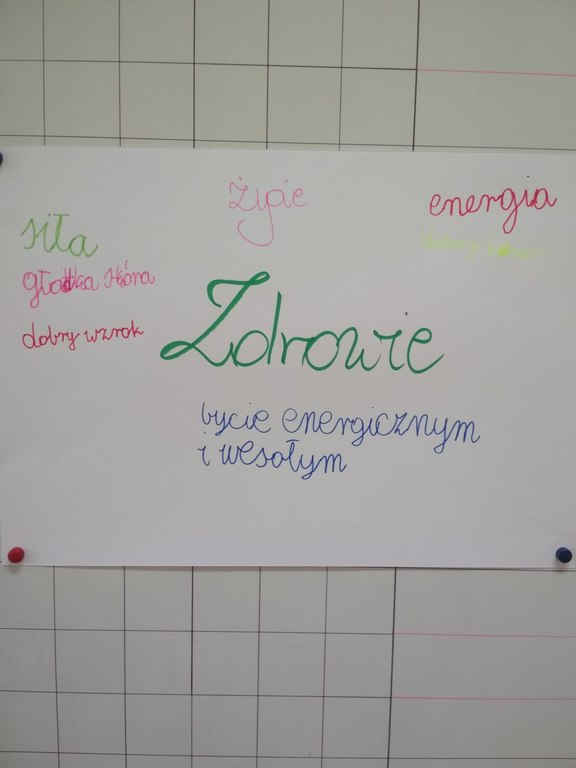 życie
energia
siła
gładka skóra
dobry wzrok
Zdrowie
bycie energicznym
i wesołym